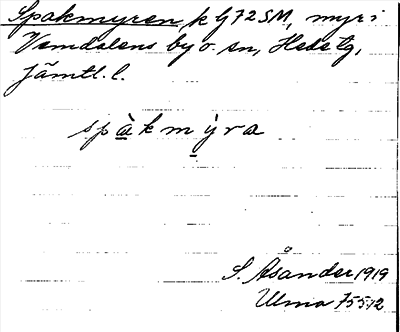 Spakmyren, k G72SM, myr i
Vemdalens by o. sn, Heds tg,
Jämtl. l.
spàkmy̓ra
S. Åsander 1919
Ulma 75512